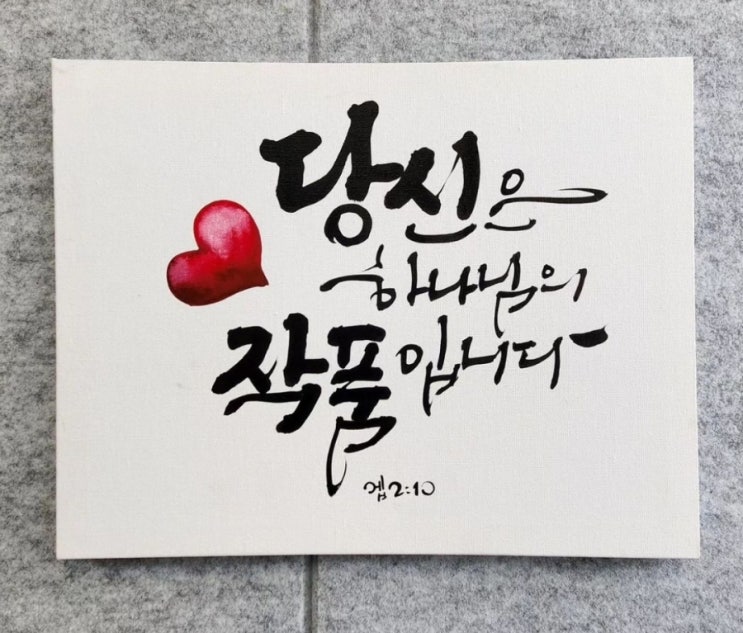 당신은
하나님의
작품입니다
엡2:10